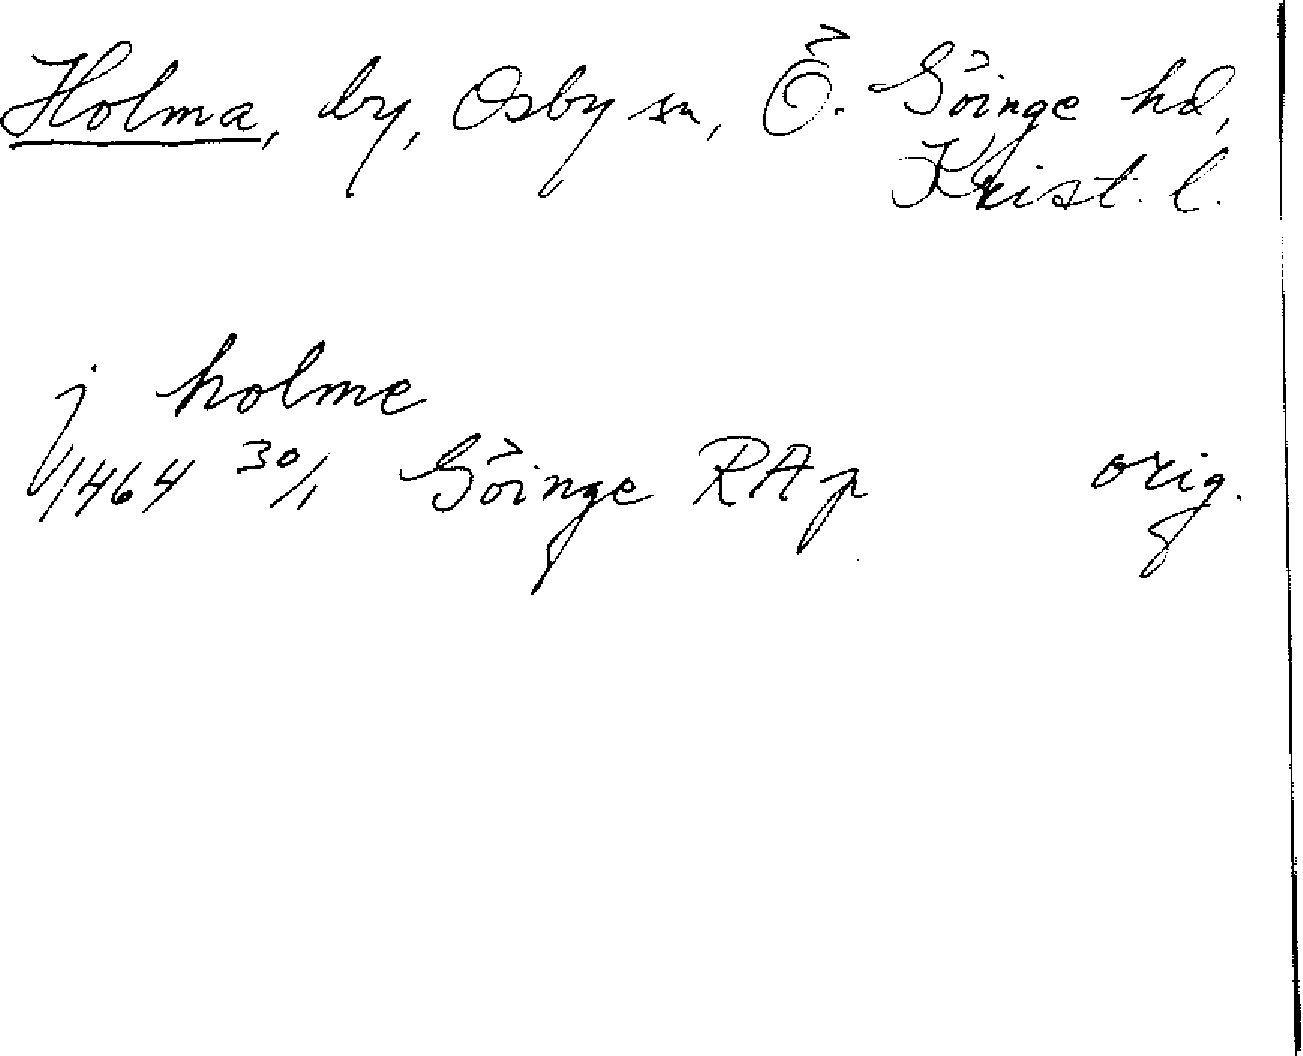 Holma, by, Osby sn, Ö. Göinge hd,
Krist. l.
j holme
1464 30/1 Göinge RAp orig.